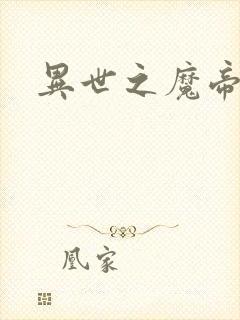 異世之魔帝
凰家